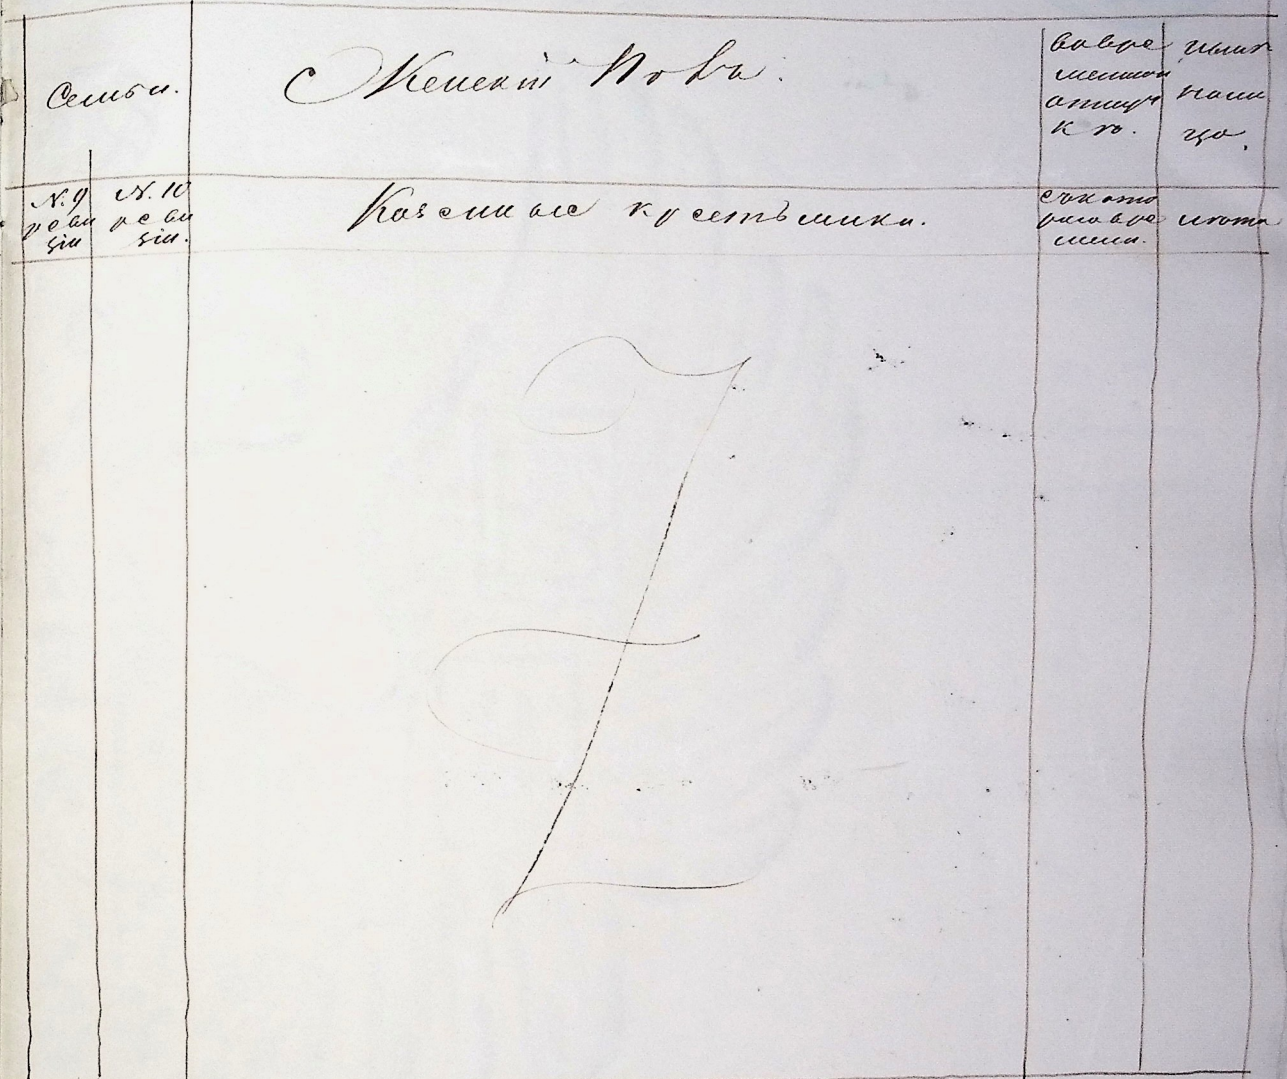 Семьи.
Женскій Полъ.
во вре
менной
отлуч
кѣ.
нали
цо.
N. 9
реви
зіи
N. 10
реви
зіи.
Казенные крестьянки.
съ кото
раго вре
мени.
лѣта